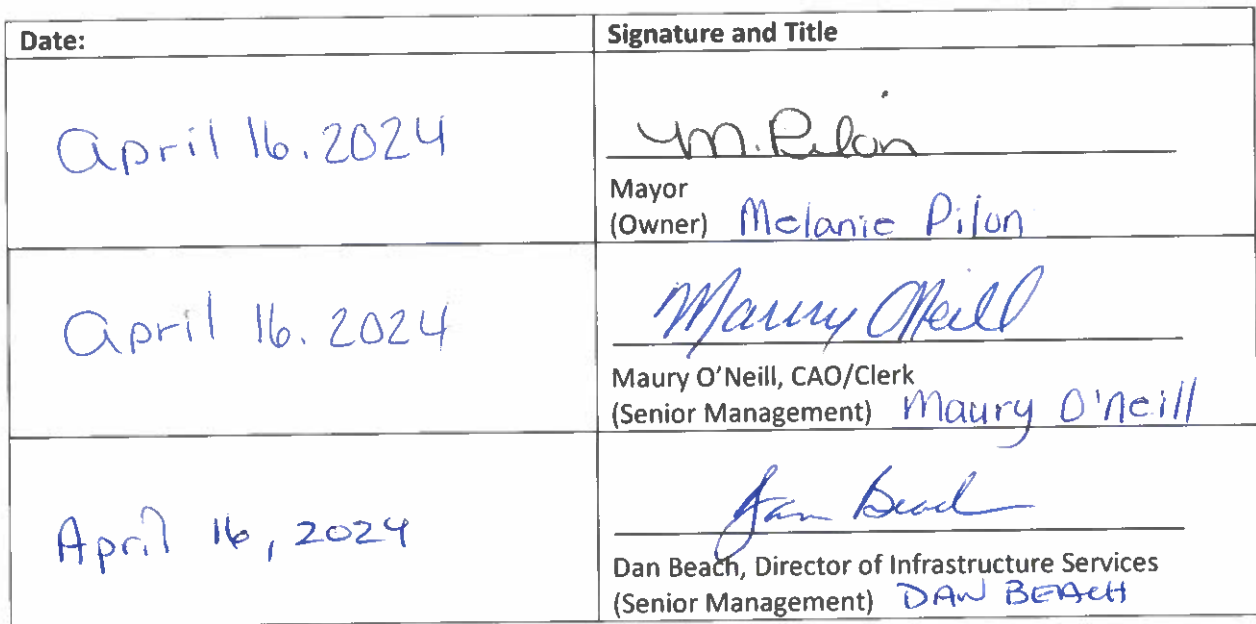 Date:
Signature and Title
April 16.2024
M. Pilon
Mayor
(Owner) Melanie Pilon
April 16.2024
Maury O'Neill
Maury O'Neill, CAO/Clerk
(Senior Management) Maury O'Neill
April 16, 2024
Dan Beach
Dan Beach, Director of Infrastructure Services
(Senior Management) DAN BEACH